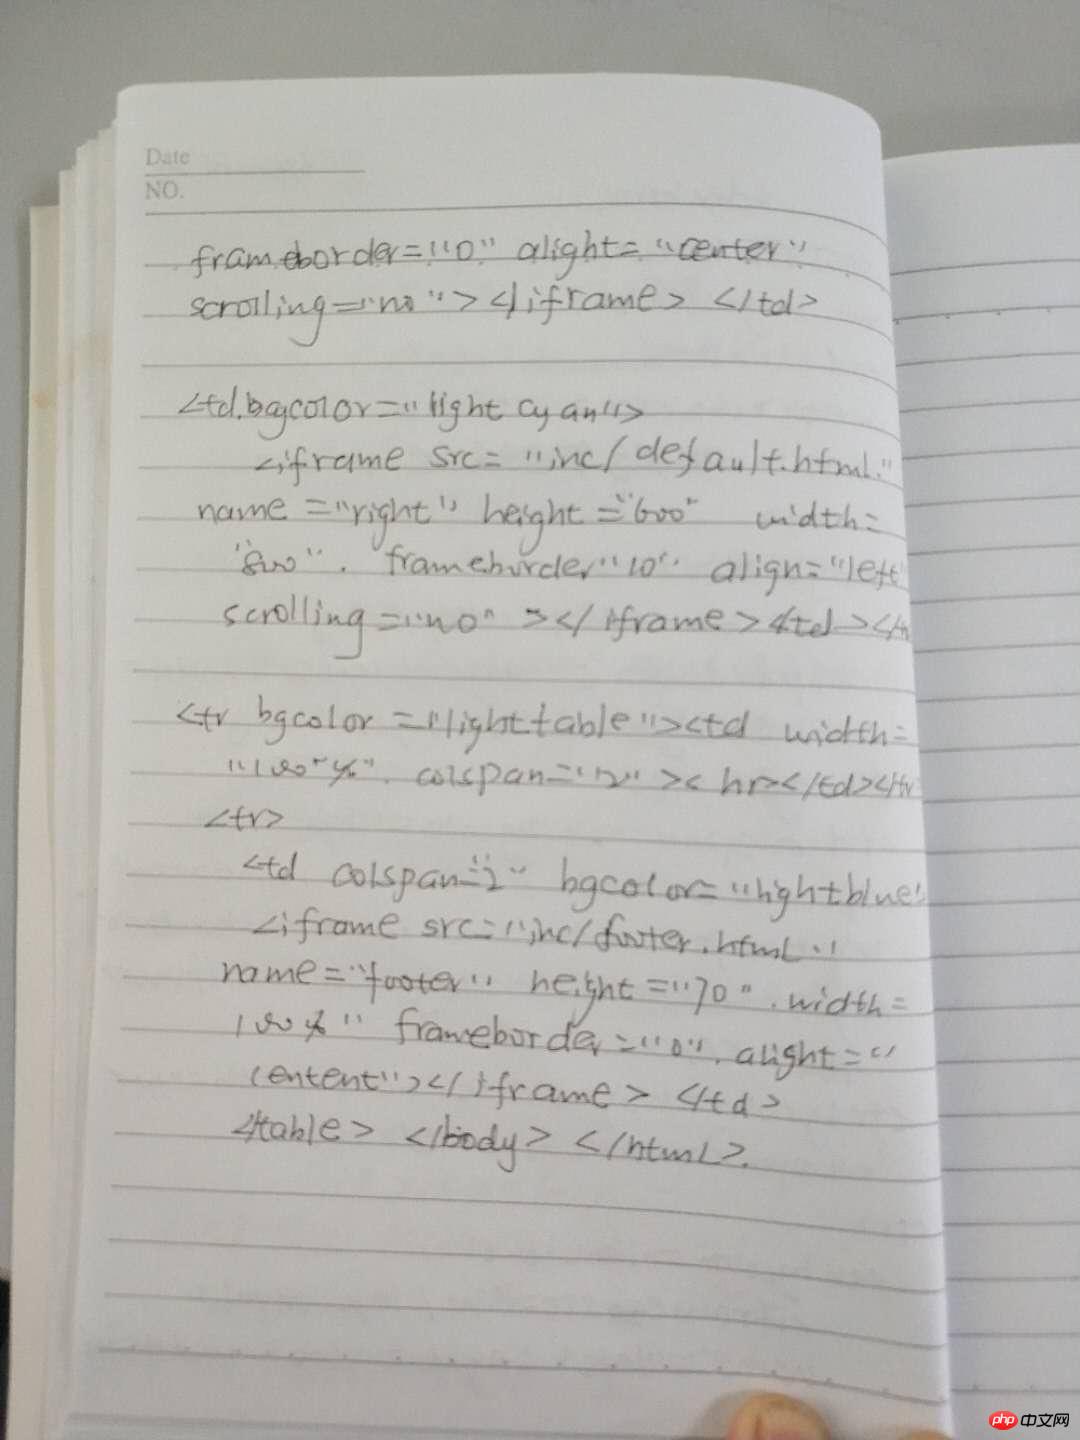 Date
NO.
frameborder="0" alight="center"
scrolling="no"></iframe></td>
<td.bgcolor="light cyan">
<iframe src="inc/default.html"
name="right" height="600" width=
"800". frameborder"10" align="left"
scrolling="no"></iframe></td></
<tr bgcolor="lighttable"><td width=
"100"%". colspan="2"><hr></td></tr
<tr>
<td colspan="2" bgcolor="lightblue"
<iframe src="inc/footer.html"
name="footer" height="70".width=
100%" frameborder="0".alight="
centent"></iframe></td>
</table></body></html>.
php 中文网